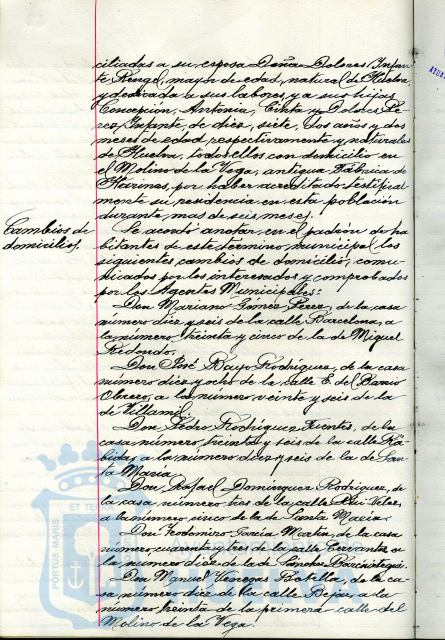 ciliadas a su esposa Doña Dolores Infan-
te Rengel, mayor de edad, natural de Huelva,
y dedicada a sus labores, y a sus hijas
Concepción, Antonia, Cinta y Dolores Pé-
rez Infante, de diez, siete, dos años y dos
meses de edad, respectivamente, y naturales
de Huelva, todos ellos con domicilio en
el Molino de la Vega, antigua Fábrica de
Harinas, por haber acreditado testifical-
mente su residencia en esta población
durante mas de seis meses.
Cambios de
domicilios.
Se acordó anotar en el padrón de ha-
bitantes de este término municipal los
siguientes cambios de domicilio, comu-
nicados por los interesados y comprobados
por los Agentes Municipales:
Don Mariano Gómez Perez, de la casa
número diez y seis de la calle Barcelona, a
la número treinta y cinco de la de Miguel
Redondo.
Don José Bayo Rodríguez, de la casa
número diez y ocho de la calle E. del Barrio
Obrero, a la número veinte y seis de la
de Villamil.
Don Pedro Rodríguez Fuentes, de la
casa número treinta y seis de la calle Rá-
bida, a la número diez y seis de la de San-
ta María.
Don Rafael Domínguez Rodríguez, de
la casa número tres de la calle Rui Velez
a la número cinco de la de Santa María.
Don García Martin, de la casa
número cuarenta y tres de la calle Cervantes a
la número diez de la de Sánchez Barcáiztegui.
Don Manuel Venegas Botella, de la ca-
sa número diez de la calle Bejar, a la
número treinta de la primera calle del
Molino de la Vega.
ET TERRAE
PORTUS MARIS